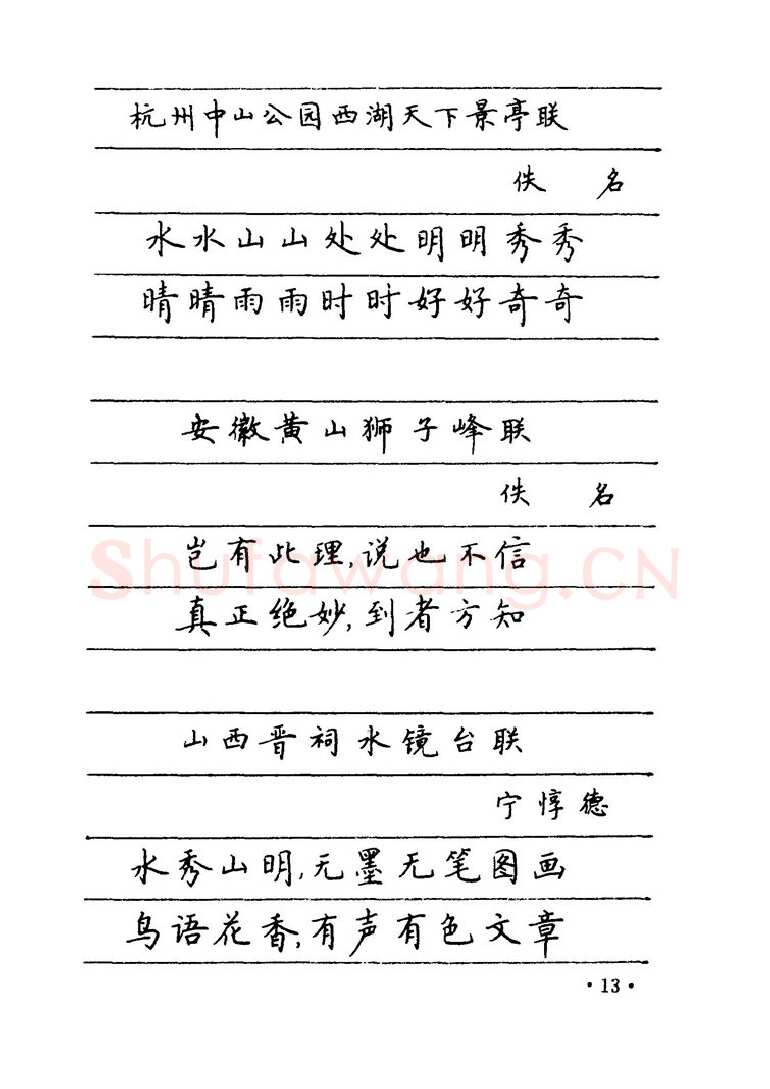 杭州中山公园西湖天下景亭联
佚 名
水水山山处处明明秀秀
晴晴雨雨时时好好奇奇
安徽黄山狮子峰联
佚 名
岂有此理,说也不信
Shufawang.CN
真正绝妙,到者方知
山西晋祠水镜台联
宁惇德
水秀山明,无墨无笔图画
鸟语花香,有声有色文章
·13·